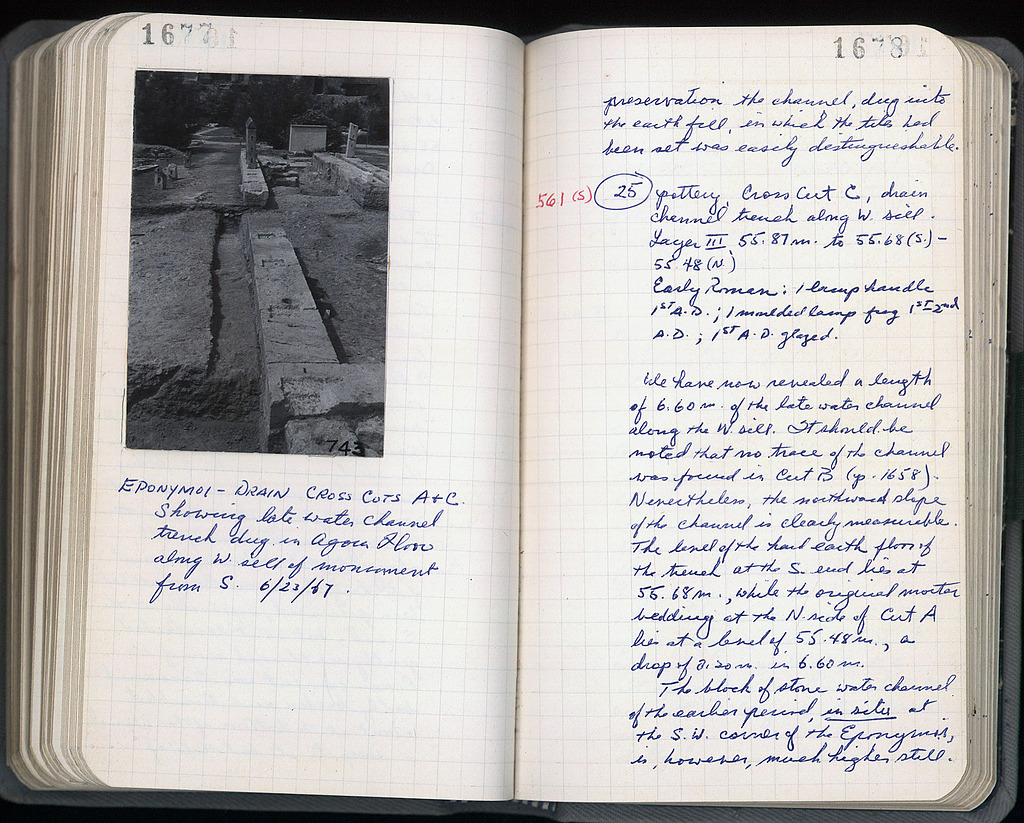 1677
743
EPONYMOI - DRAIN CROSS CUTS A+C.
Showing late water channel
trench dug in Agora Floor
along W. sill of monument
from S. 6/23/67.
1678
preservation the channel, dug into
the earth fill, in which the tiles had
been set was easily distinguishable.
561 (S) 25 pottery, Cross Cut C, drain
channel trench along W. sill.
Layer III 55.87m. to 55.68 (S.) -
55.48 (N.)
Early Roman: 1 lamp handle
1ST A.D.; 1 moulded lamp frag 1ST-2nd
A.D.; 1ST A.D. glazed.
We have now revealed a length
of 6.60 m. of the late water channel
along the W. sill. It should be
noted that no trace of the channel
was found in Cut B (p. 1658).
Nevertheless, the northward slope
of the channel is clearly measurable.
The level of the hard earth floor of
the trench at the S. end lies at
55.68 m., while the original mortar
bedding at the N. side of Cut A
lies at a level of 55.48 m., a
drop of 0.20 m. in 6.60 m.
The block of stone water channel
of the earlier period, in situ at
the S.W. corner of the Eponymoi,
is, however, much higher still.